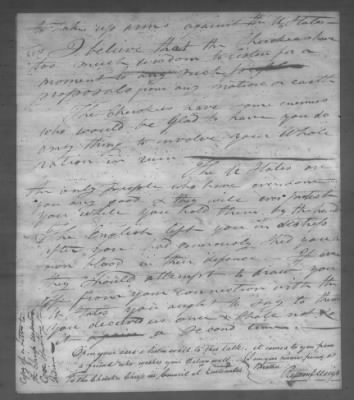 to take up arms against the U States
I believe that the Cherokees have
too much wisdom to listen for a
moment to any such
proposals from any nation on earth
The Cherokees have some enemies
who would be glad to have you do
any thing to involve your whole
nation in ruin
The U States are
the only people who have ever done
you any good & they will ever protect
you while you hold them by the hand
The English left you in distress
after you had generously shed your
own blood in their defence If ever
they should attempt to draw you
off from your connection with the
U States you ought to say to them
you deceived us once & shall not do
it a second time
Open your ears & listen well to this talk. it comes to you from
a friend who wishes your Nation well. I am your sincere friend &
Brother
To the Cherokee Chiefs in Council at
Return J Meigs
Copy of a letter to
the Cherokees